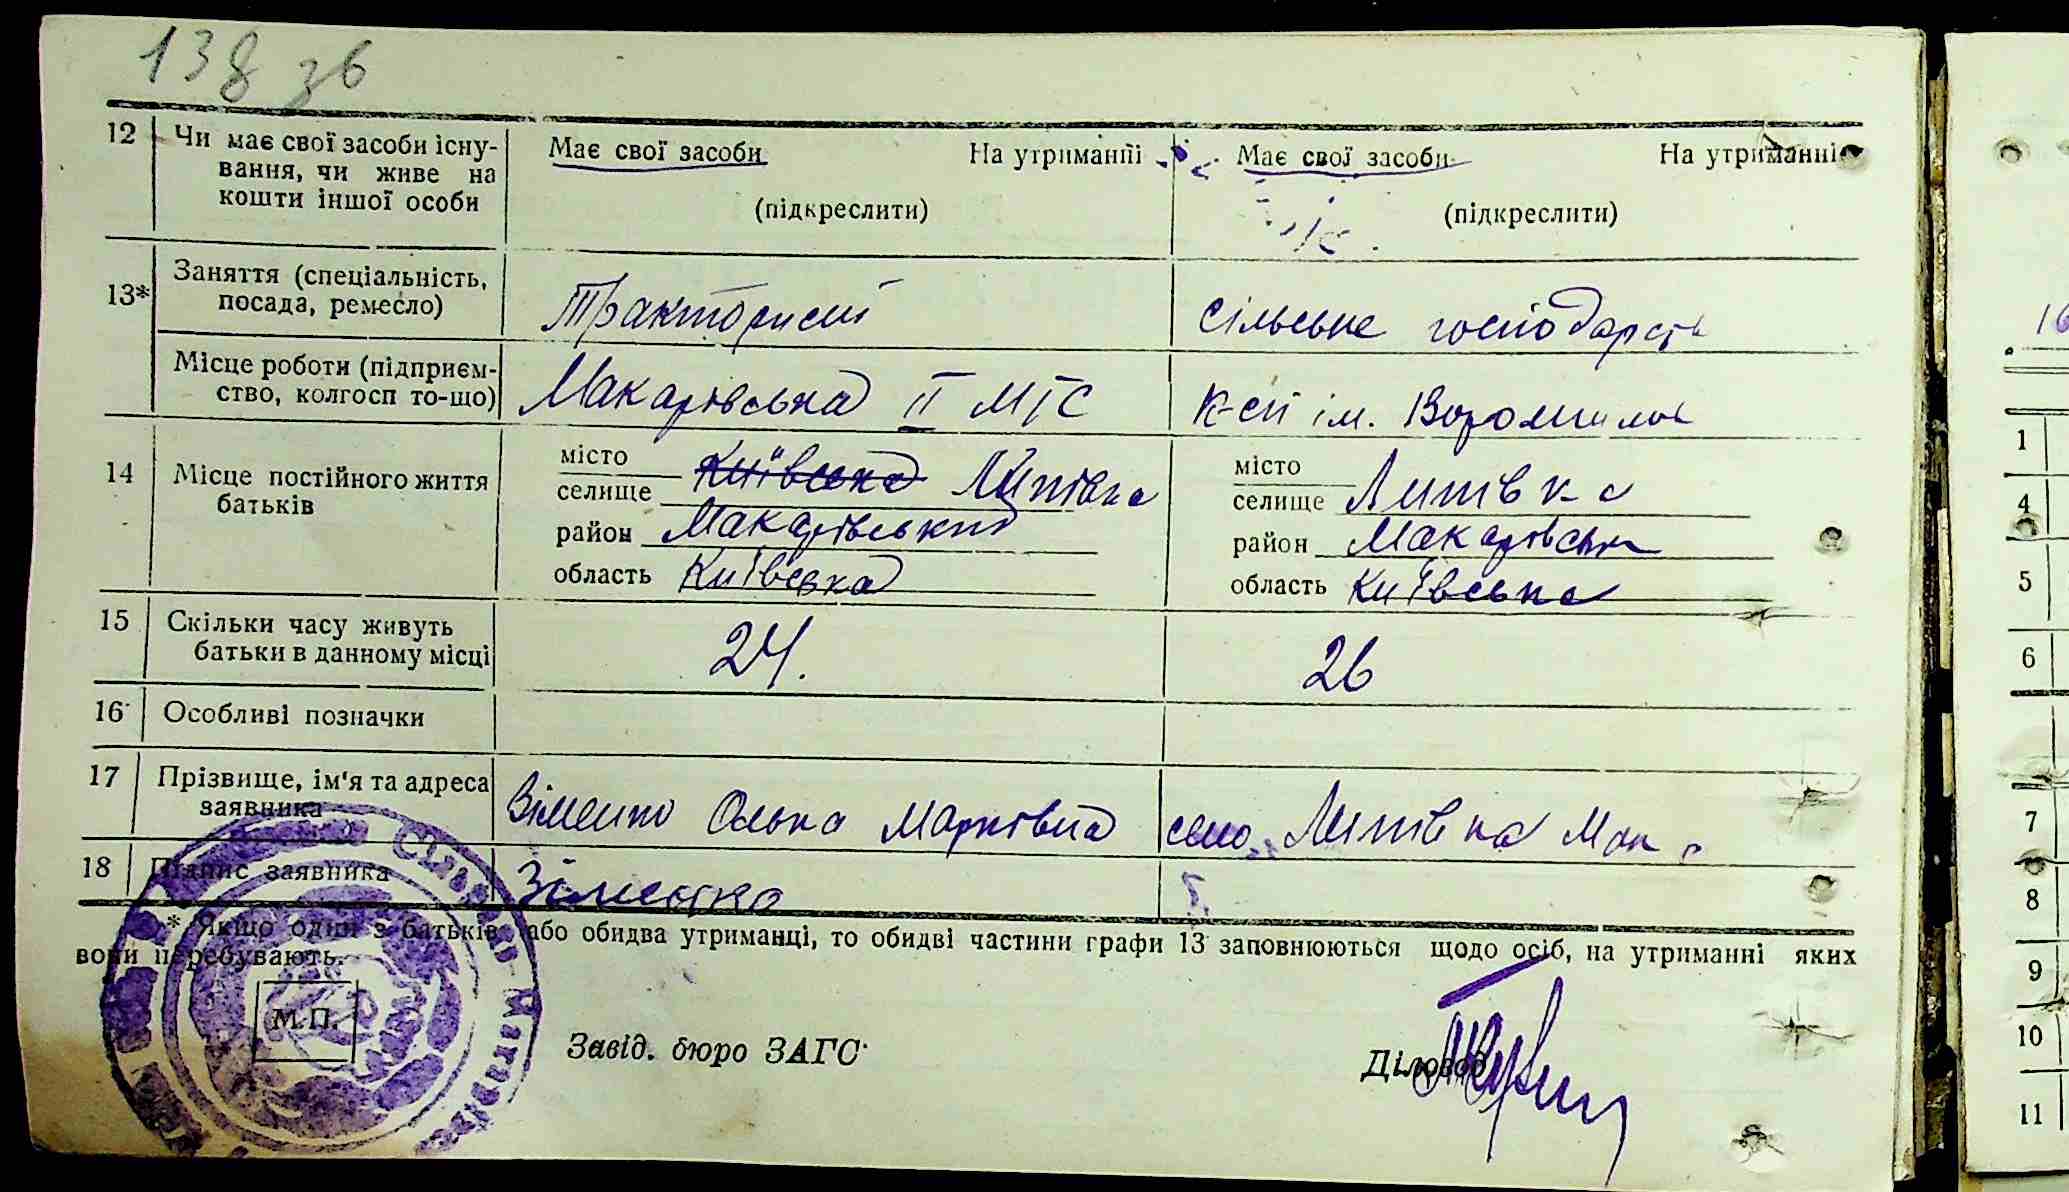 138 зв
12 Чи має свої засоби існу- Має свої засоби На утриманні Має свої засоби На утриманні
вання, чи живе на
кошти іншої особи (підкреслити) (підкреслити)
13* Заняття (спеціальність,
посада, ремесло) Тракторист сільське господарств
Місце роботи (підприєм-
ство, колгосп то-що) Макарівська ІІ МТС К-сп ім. Ворошилов
14 Місце постійного життя
батьків
місто місто
селище Київська Липівка селище Липівка
район Макарівський район Макарівськ
область Київська область Київська
15 Скільки часу живуть
батьки в данному місці 24. 26
16 Особливі позначки
17 Прізвище, ім'я та адреса
заявника Зіменко Ольга Марківна село Липівка Мак.
18 Підпис заявника Зіменко
* Якщо один з батьків, або обидва утриманці, то обидві частини графи 13 заповнюються щодо осіб, на утриманні яких
вони перебувають.
М.П.
Завід. бюро ЗАГС Діловод
16
1
4
5
6
7
8
9
10
11